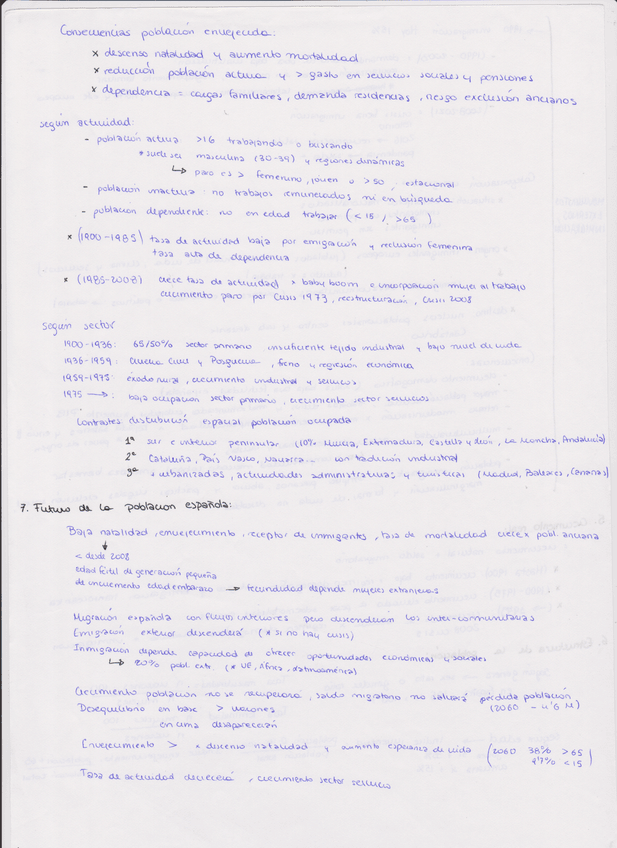 Consecuencias población envejecida:
x descenso natalidad y aumento mortalidad
x reducción población activa y > gasto en servicios sociales y pensiones
x dependencia = cargas familiares, demanda residencias, riesgo exclusión ancianos
según actividad:
- población activa >16 trabajando o buscando
* suele ser masculina (30-39) y regiones dinámicas
↳ paro es > femenino, joven o >50, estacional
- población inactiva: no trabajos remunerados ni en búsqueda
- población dependiente: no en edad trabajar (<15, >65)
x (1900-1985) tasa de actividad baja por emigración y reclusión femenina
tasa alta de dependencia
x (1985-2008) crece tasa de actividad x baby boom e incorporación mujer al trabajo
crecimiento paro por crisis 1973, reestructuración, crisis 2008
según sector
1900-1936: 65/50% sector primario insuficiente tejido industrial y bajo nivel de vida
1936-1959: Guerra Civil y Posguerra, freno y regresión económica
1959-1975: éxodo rural, crecimiento industrial y servicios
1975 →: baja ocupación sector primario, crecimiento sector servicios
Contrastes distribución espacial población ocupada
1º sur e interior peninsular (10% Murcia, Extremadura, Castilla y León, La Mancha, Andalucía)
2º Cataluña, País Vasco, Navarra... con tradición industrial
3º + urbanizadas, actividades administrativas y turísticas (Madrid, Baleares, Canarias)
7. Futuro de la población española:
Baja natalidad, envejecimiento, receptor de inmigrantes, tasa de mortalidad crece x pobl. anciana
↓
< desde 2008
edad fértil de generación pequeña
de incremento edad embarazo → fecundidad depende mujeres extranjeras
Migración española con flujos interiores pero descendirán los inter-comunitarias
Emigración exterior descenderá (* si no hay crisis)
Inmigración depende capacidad de ofrecer oportunidades económicas y sociales
↳ 20% pobl. extr. (* UE, África, Latinoamérica)
Crecimiento población no se recuperará, saldo migratorio no salvará pérdida población
(2060 - 4'6 M)
Desequilibrio en base > varones
en cima desaparecerán
Envejecimiento > x descenso natalidad y aumento esperanza de vida (2060 38% >65
27% <15)
Tasa de actividad decrecerá, crecimiento sector servicio